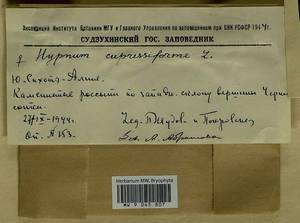 Экспедиция Института Ботаники МГУ и Главного Управления по заповедникам при СНК РСФСР 194
СУДЗУХИНСКИЙ ГОС. ЗАПОВЕДНИК
Hypnum cupressiforme L.
Ю. Сихотэ-Алинь.
Каменистые россыпи по западн. склону вершины
27/IX-1944.
Оп. № 153.
Leg.
Det. А. Абрамова
Herbarium MW, Bryophyta
MW 9045807